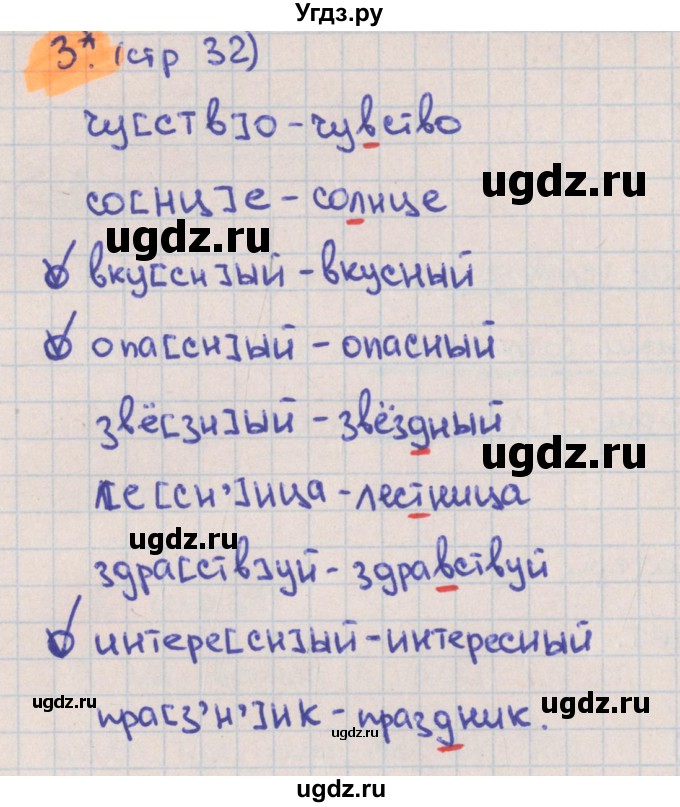 Угдз.ру
3*. (стр 32)
чу[ств]о - чувство
ugdz.ru
со[нц]е - солнце
ugdz.ru
вку[сн]ый - вкусный
опа[сн]ый - опасный
звё[зн]ый - звёздный
ugdz.ru
ле[сн']ица - лестница
ugdz.ru
здра[ств]уй - здравствуй
интере[сн]ый - интересный
ugdz.ru
ugdz.ru
пра[з'н']ик - праздник.
ugdz.ru
ugdz.ru